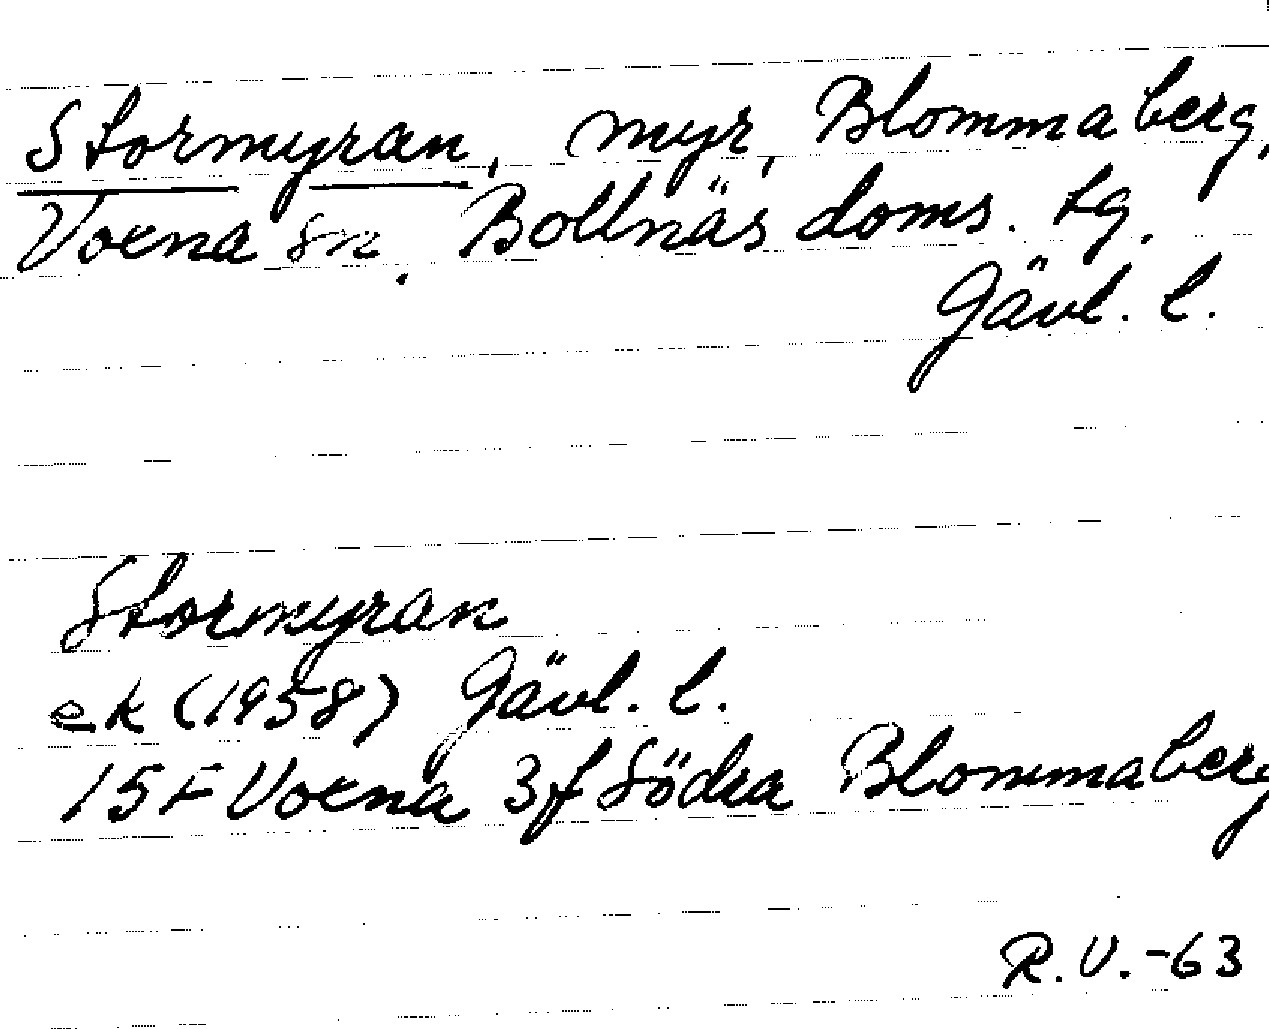 Stormyran, myr, Blommaberg,
Voxna sn. Bollnäs doms. tg.
Gävl. l.
Stormyran
ek (1958) Gävl. l.
15F Voxna 3f Södra Blommaberg
R.V.-63